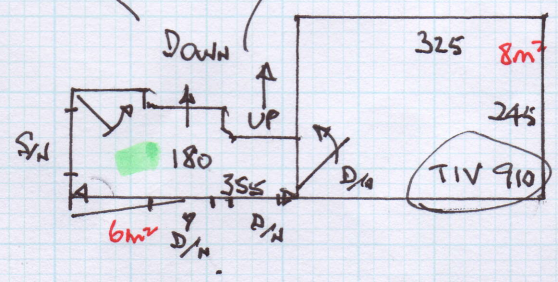 DOWN
325
8m²
UP
245
S/N
180
D/N
TIV 910
355
6m²
D/N
D/N